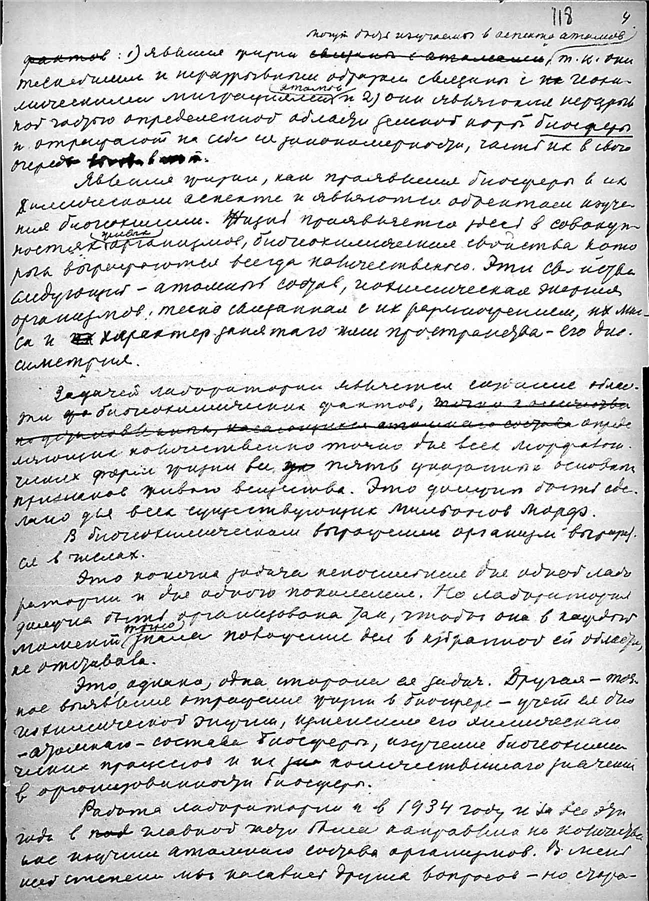 118 4
могут быть изучаемы в аспекте атомов
фактов: 1) явления жизни связаны с атомами, т.к. они
теснейшим и неразрывным образом связаны с геохи-
мическими миграциями атомов и 2) они являются нераздель
ной частью определенной области земной коры биосферы
и отражают на себе ее закономерности, часть их в свою
очередь
Явления жизни, как проявления биосферы в их
химическом аспекте и являются объектами изуче-
ния биогеохимии. Жизнь проявляется здесь в совокуп-
ностях живых организмов, биогеохимические свойства кото
рых выражаются всегда количественно. Эти свойства
следующие – атомный состав, геохимическая энергия
организмов, тесно связанная с их размножением, их мас-
са и характер занятого ими пространства – его дис-
симетрия.
Задачей лаборатории является создание облас-
ти биогеохимических фактов, опреде
ляющих количественно точно для всех морфологи-
ческих форм жизни все пять указанных основных
признаков живого вещества. Это должно быть сде-
лано для всех существующих миллионов морф.
В биогеохимическом выражении организм выразит
ся в числах.
Это конечно задача непосильная для одной лабо
ратории и для одного поколения. Но лаборатория
должна быть организована так, чтобы она в каждый
момент точно знала положение дел в избранной ей области,
не отставала.
Это, однако, одна сторона ее задач. Другая – точ-
ное выявление отражения жизни в биосфере – учет ее био
геохимической энергии, изменение его химического
– атомного – состава биосферы, изучение биогеохими
ческих процессов и их количественного значения
в организованности биосферы.
Работа лаборатории и в 1934 году и во все эти
годы в главной части была направлена на количествен
ное изучение атомного состава организмов. В мень
шей степени мы касались других вопросов – но стара-